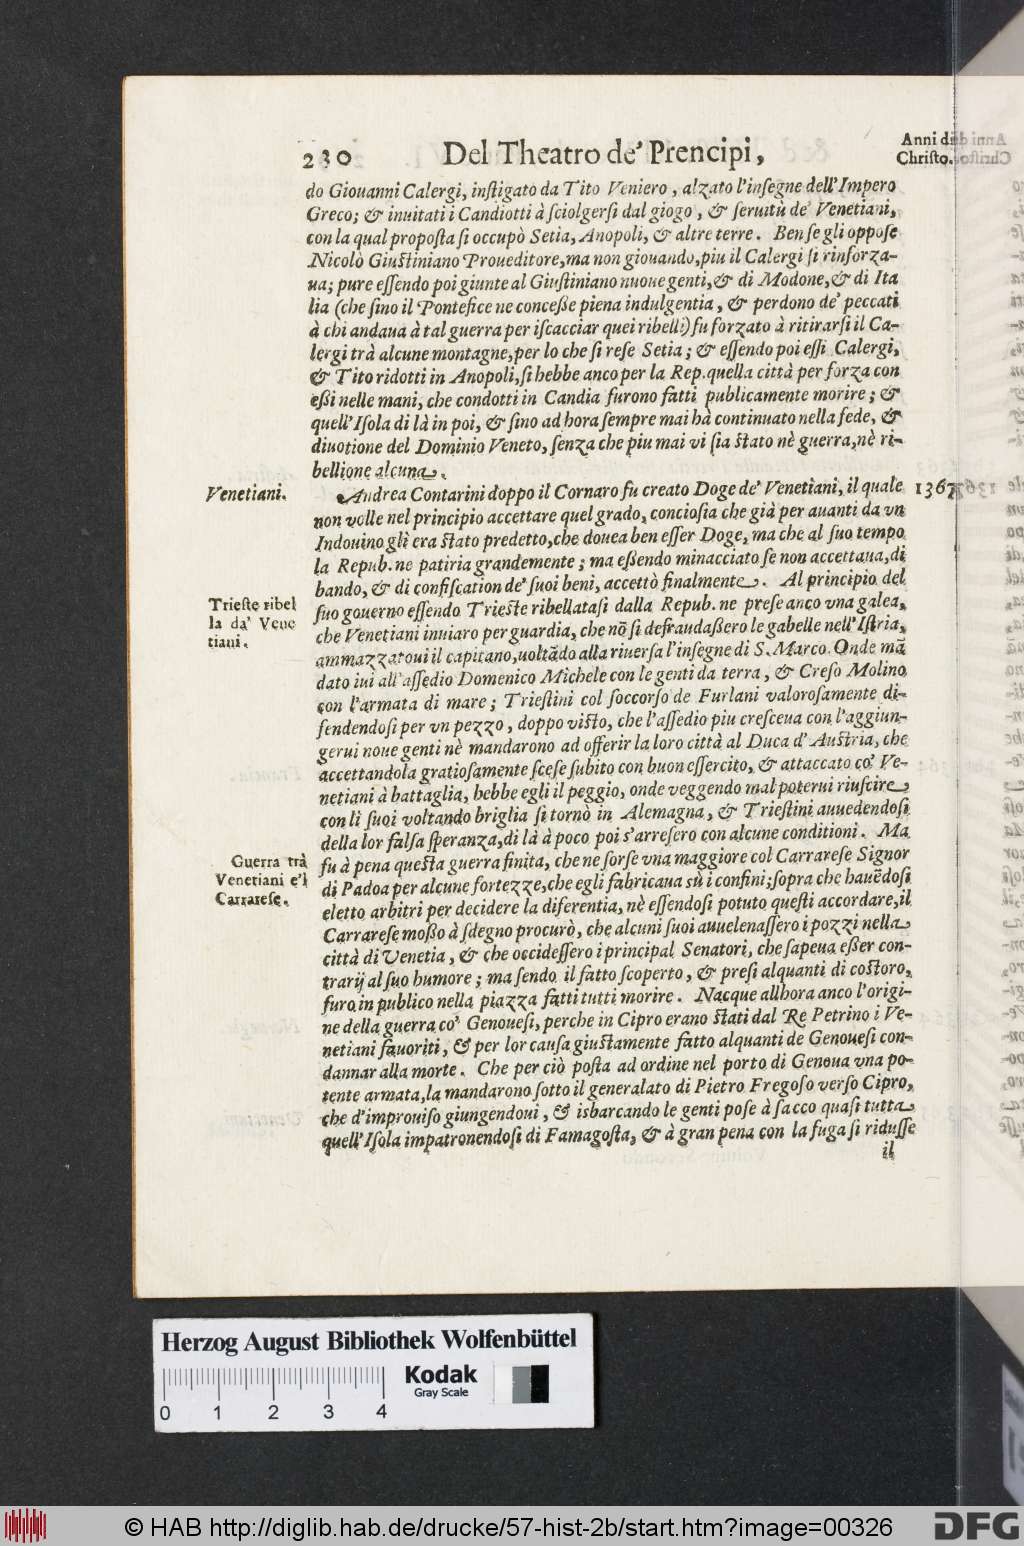 230 Del Theatro de' Prencipi,
Anni di
Christo.
do Giouanni Calergi, instigato da Tito Veniero, alzato l'insegne dell'Impero
Greco; & inuitati i Candiotti à sciolgersi dal giogo, & seruitù de' Venetiani,
con la qual proposta si occupò Setia, Anopoli, & altre terre. Ben se gli oppose
Nicolò Giustiniano Proueditore, ma non giouando, piu il Calergi si rinforza-
ua; pure essendo poi giunte al Giustiniano nuoue genti, & di Modone, & di Ita
lia (che sino il Pontefice ne concesse piena indulgentia, & perdono de' peccati
à chi andaua à tal guerra per iscacciar quei ribelli) fu forzato à ritirarsi il Ca-
lergi trà alcune montagne, per lo che si rese Setia; & essendo poi essi Calergi,
& Tito ridotti in Anopoli, si hebbe anco per la Rep. quella città per forza con
essi nelle mani, che condotti in Candia furono fatti publicamente morire; &
quell'Isola di là in poi, & sino ad hora sempre mai hà continuato nella fede, &
diuotione del Dominio Veneto, senza che piu mai vi sia stato nè guerra, nè ri-
bellione alcuna.
Venetiani.
Andrea Contarini doppo il Cornaro fu creato Doge de' Venetiani, il quale 1367
non volle nel principio accettare quel grado, conciosia che già per auanti da vn
Indouino gli era stato predetto, che douea ben esser Doge, ma che al suo tempo
la Repub. ne patiria grandemente; ma essendo minacciato se non accettaua, di
bando, & di confiscation de' suoi beni, accettò finalmente. Al principio del
Trieste ribel
la da' Vene
tiani.
suo gouerno essendo Trieste ribellatasi dalla Repub. ne prese anco vna galea,
che Venetiani inuiaro per guardia, che nõ si defraudassero le gabelle nell'Istria,
ammazzatoui il capitano, uoltãdo alla riuersa l'insegne di S. Marco. Onde mã
dato iui all'assedio Domenico Michele con le genti da terra, & Creso Molino
con l'armata di mare; Triestini col soccorso de Furlani valorosamente di-
fendendosi per vn pezzo, doppo visto, che l'assedio piu cresceua con l'aggiun-
gerui noue genti nè mandarono ad offerir la loro città al Duca d'Austria, che
accettandola gratiosamente scese subito con buon essercito, & attaccato co' Ve-
netiani à battaglia, hebbe egli il peggio, onde veggendo mal poterui riuscire
con li suoi voltando briglia si tornò in Alemagna, & Triestini auuedendosi
della lor falsa speranza, di là à poco poi s'arresero con alcune conditioni. Ma
Guerra trà
Venetiani e'l
Carrarese.
fu à pena questa guerra finita, che ne sorse vna maggiore col Carrarese Signor
di Padoa per alcune fortezze, che egli fabricaua sù i confini; sopra che hauẽdosi
eletto arbitri per decidere la diferentia, nè essendosi potuto questi accordare, il
Carrarese mosso à sdegno procurò, che alcuni suoi auuelenassero i pozzi nella
città di Venetia, & che occidessero i principal Senatori, che sapeua esser con-
trarij al suo humore; ma sendo il fatto scoperto, & presi alquanti di costoro,
furo in publico nella piazza fatti tutti morire. Nacque allhora anco l'origi-
ne della guerra co' Genouesi, perche in Cipro erano stati dal Re Petrino i Ve-
netiani fauoriti, & per lor causa giustamente fatto alquanti de Genouesi con-
dannar alla morte. Che per ciò posta ad ordine nel porto di Genoua vna po-
tente armata, la mandarono sotto il generalato di Pietro Fregoso verso Cipro,
che d'improuiso giungendoui, & isbarcando le genti pose à sacco quasi tutta
quell'Isola impatronendosi di Famagosta, & à gran pena con la fuga si ridusse
il
Herzog August Bibliothek Wolfenbüttel
Kodak
Gray Scale
0 1 2 3 4
© HAB http://diglib.hab.de/drucke/57-hist-2b/start.htm?image=00326
DFG